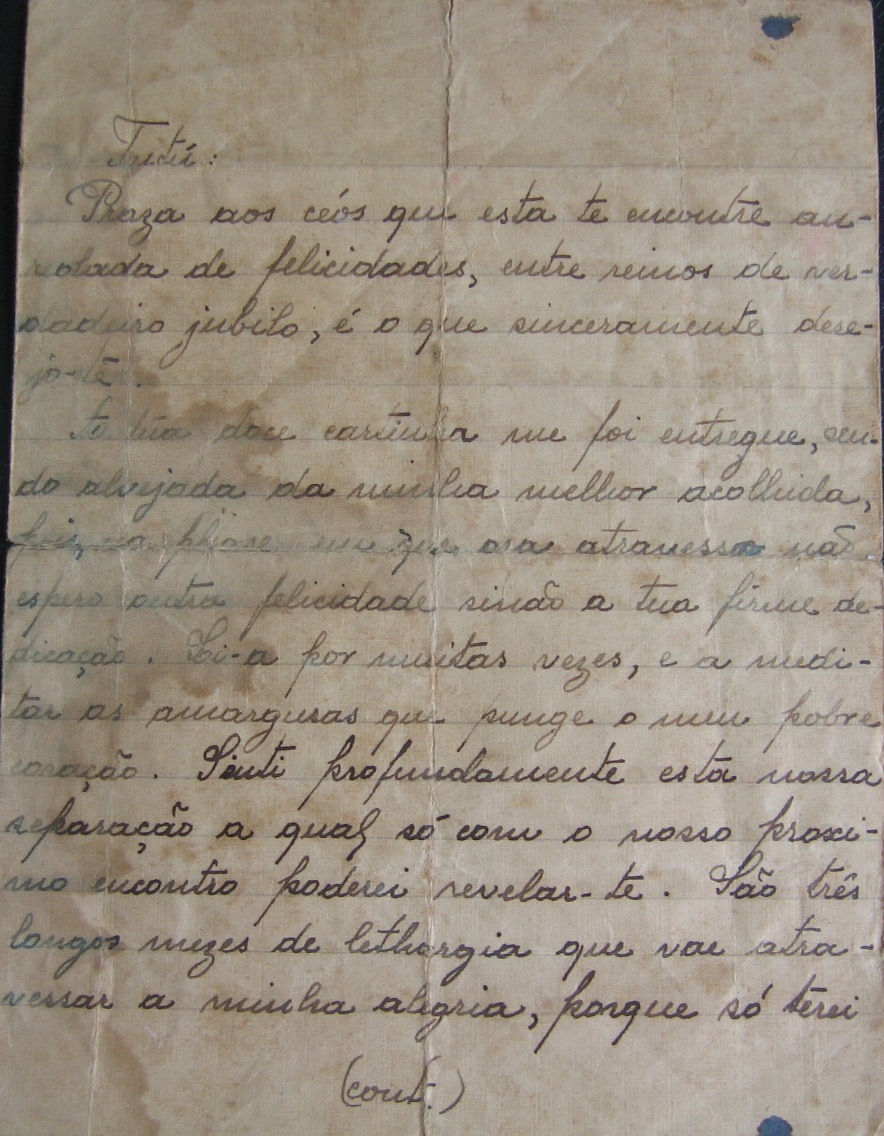 Tutú:
Praza aos céos que esta te encontre au-
reolada de felicidades, entre reinos de ver-
dadeiro jubilo, é o que sinceramente dese-
jo-te.
A tua doce cartinha me foi entregue, sen-
do alvejada da minha melhor acolhida,
pois, na phase em que ora atravesso não
espero outra felicidade sinão a tua firme de-
dicação. Li-a por muitas vezes, e a medi-
tar as amarguras que punge o meu pobre
coração. Sinti profundamente esta nossa
separação a qual só com o nosso proxi-
mo encontro poderei revelar-te. São três
longos mezes de lethargia que vae atra-
vessar a minha alegria, porque só terei
(cont.)